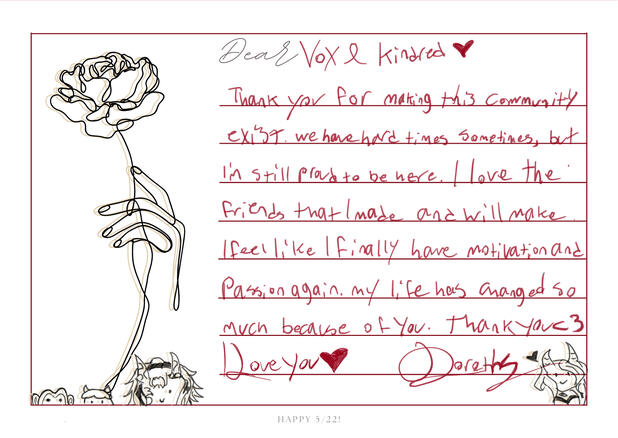 Dear Vox & Kindred ♥
Thank you for making this community
exist. we have hard times sometimes, but
I'm still proud to be here. I love the
friends that I made and will make.
I feel like I finally have motivation and
Passion again. my life has changed so
much because of you. Thank you <3
I Love you ♥ Dorothy
HAPPY 5/22!